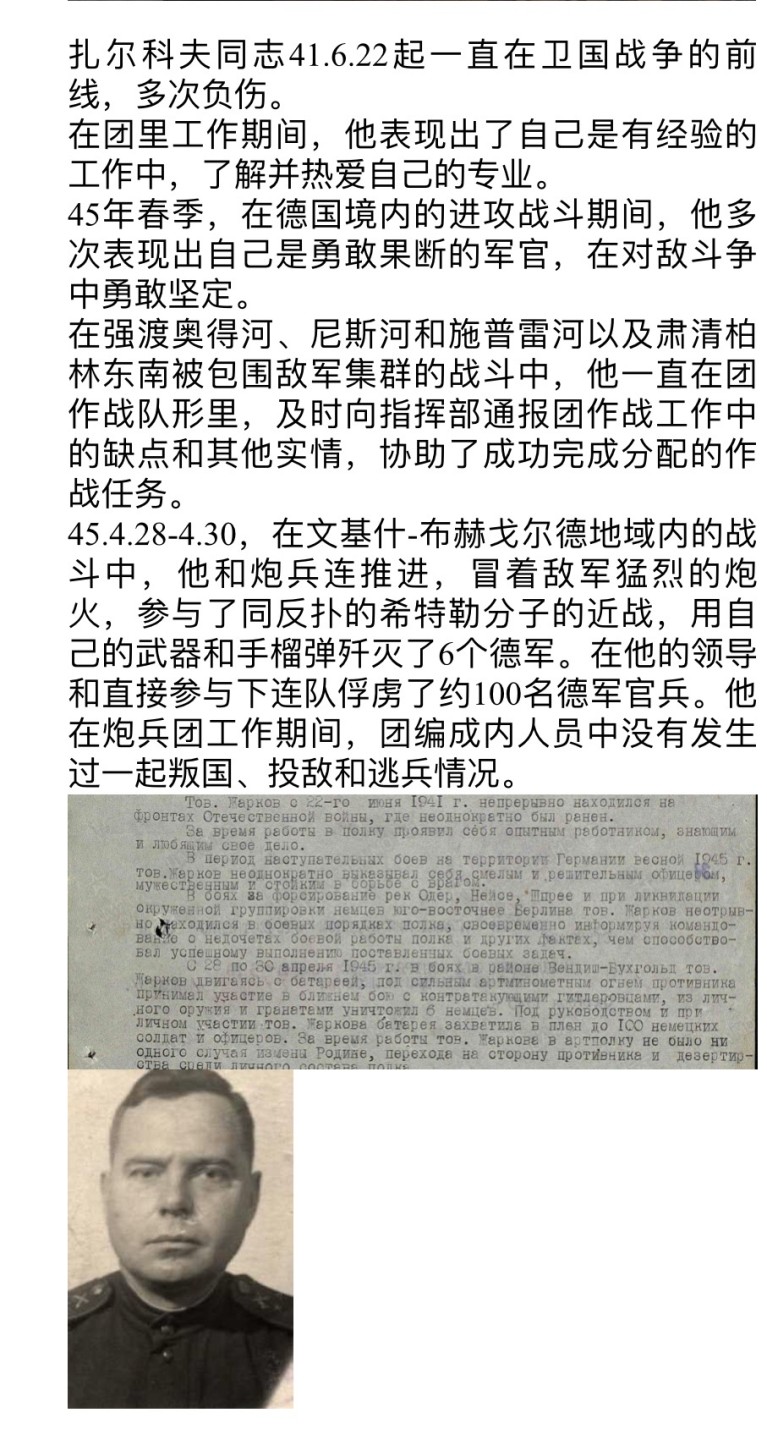 扎尔科夫同志41.6.22起一直在卫国战争的前
线，多次负伤。
在团里工作期间，他表现出了自己是有经验的
工作中，了解并热爱自己的专业。
45年春季，在德国境内的进攻战斗期间，他多
次表现出自己是勇敢果断的军官，在对敌斗争
中勇敢坚定。
在强渡奥得河、尼斯河和施普雷河以及肃清柏
林东南被包围敌军集群的战斗中，他一直在团
作战队形里，及时向指挥部通报团作战工作中
的缺点和其他实情，协助了成功完成分配的作
战任务。
45.4.28-4.30，在文基什-布赫戈尔德地域内的战
斗中，他和炮兵连推进，冒着敌军猛烈的炮
火，参与了同反扑的希特勒分子的近战，用自
己的武器和手榴弹歼灭了6个德军。在他的领导
和直接参与下连队俘虏了约100名德军官兵。他
在炮兵团工作期间，团编成内人员中没有发生
过一起叛国、投敌和逃兵情况。
Тов. Жарков с 22-го июня 1941 г. непрерывно находился на
фронтах Отечественной войны, где неоднократно был ранен.
За время работы в полку проявил себя опытным работником, знающим
и любящим свое дело.
В период наступательных боев на территории Германии весной 1945 г.
тов.Жарков неоднократно выказывал себя смелым и решительным офицером,
мужественным и стойким в борьбе с врагом.
В боях за форсирование рек Одер, Нейсе, Шпрее и при ликвидации
окруженной группировки немцев юго-восточнее Берлина тов. Жарков неотрыв-
но находился в боевых порядках полка, своевременно информируя командо-
вание о недочетах боевой работы полка и других фактах, чем способство-
вал успешному выполнению поставленных боевых задач.
С 28 по 30 апреля 1945 г. в боях в районе Вендиш-Бухгольц тов.
Жарков двигаясь с батареей, под сильным артминометным огнем противника
принимал участие в ближнем бою с контратакующими гитлеровцами, из лич-
ного оружия и гранатами уничтожил 6 немцев. Под руководством и при
личном участии тов. Жаркова батарея захватила в плен до 100 немецких
солдат и офицеров. За время работы тов. Жаркова в артполку не было ни
одного случая измены Родине, перехода на сторону противника и дезертир-
ства среди личного состава полка